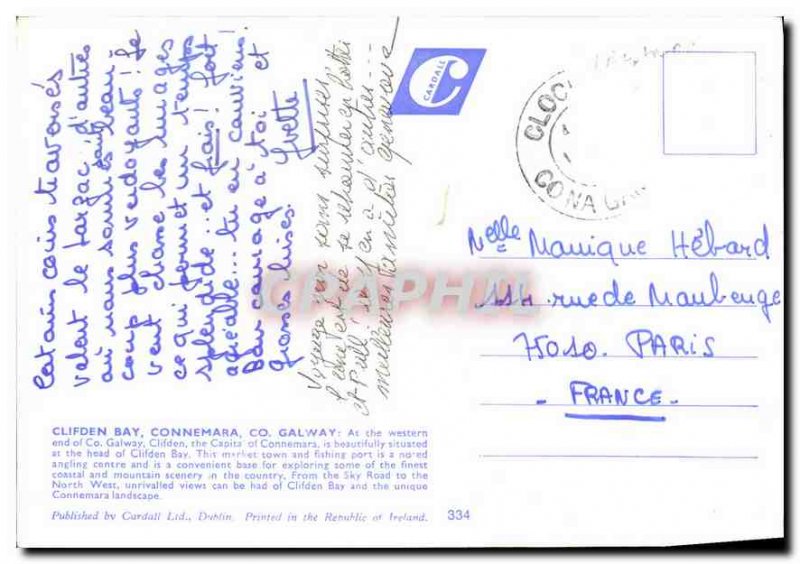 Certains coins traversés
valent le Larzac, d'autres
où nous sommes sont beau
coup plus verdoyants! Le
vent chasse les nuages
ce qui permet un temps
splendide.. et frais! fort
agréable... tu en conviens!
Bon courage à toi et
grosses bises.
Yvette
Voyage sans surprises
et Pull! il y en a d'autres...
meilleures amitiés
CARDALL
CLOC
CO NA GAI
Melle Monique Hébard
114 rue de Maubeuge
75010. PARIS
- FRANCE -
CLIFDEN BAY, CONNEMARA, CO. GALWAY: At the western
end of Co. Galway, Clifden, the Capital of Connemara, is beautifully situated
at the head of Clifden Bay. This market town and fishing port is a noted
angling centre and is a convenient base for exploring some of the finest
coastal and mountain scenery in the country. From the Sky Road to the
North West, unrivalled views can be had of Clifden Bay and the unique
Connemara landscape.
Published by Cardall Ltd., Dublin. Printed in the Republic of Ireland. 334
CPAPHIL